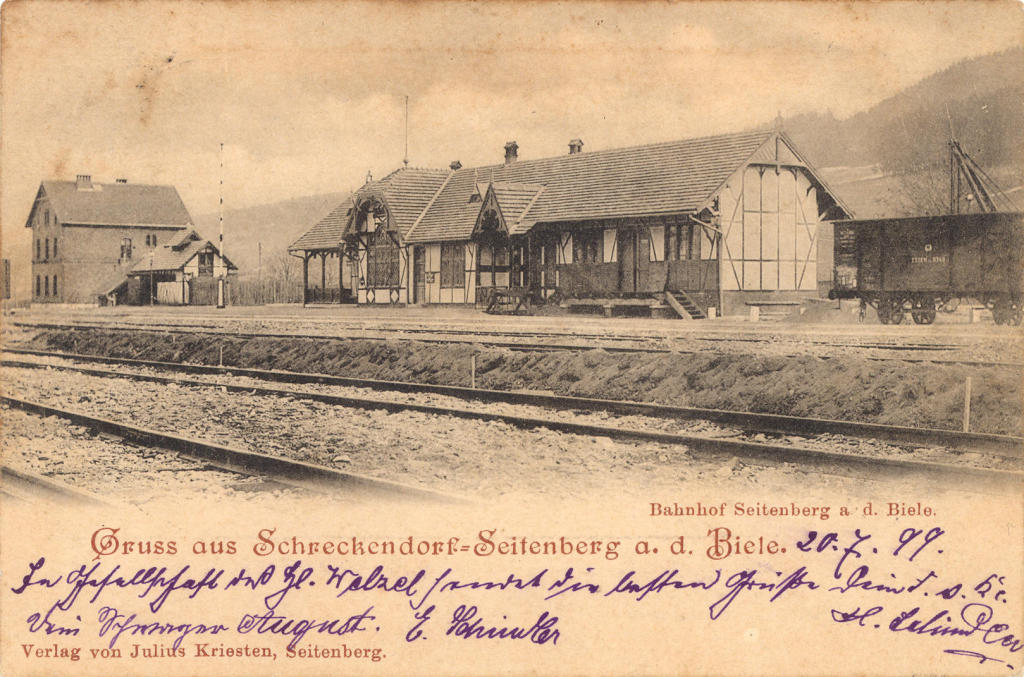 Bahnhof Seitenberg a d. Biele.
Gruss aus Schreckendorf-Seitenberg a. d. Biele. 20. 7. 99.
In Gesellschaft des H. Welzel sendet die besten Grüße Dein
Dein Schwager August. E. Schindler H.
Verlag von Julius Kriesten, Seitenberg.